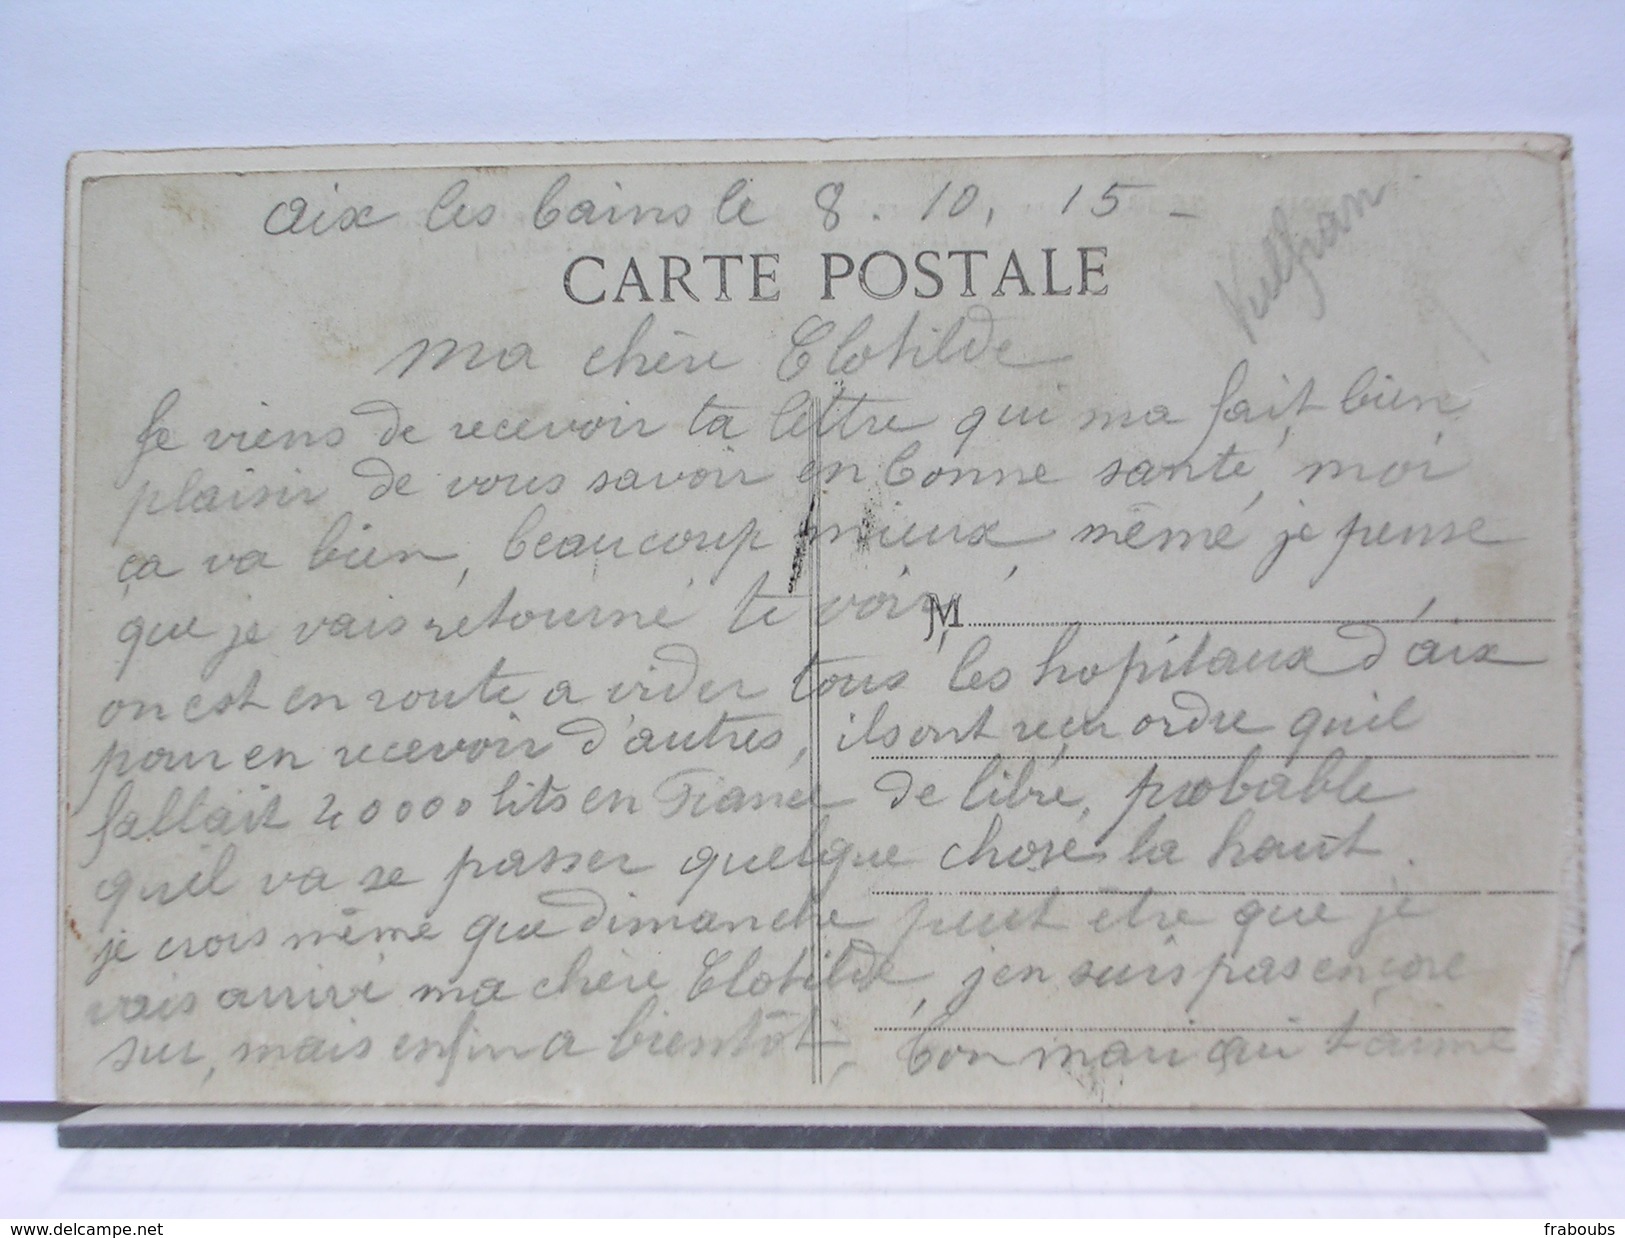 Aix les bains le 8. 10. 15 -
CARTE POSTALE
Vulfran
Ma chère Clotilde
Je viens de recevoir ta lettre qui ma fait bien
plaisir de vous savoir en bonne santé, moi
ça va bien, beaucoup mieux, même je pense
que je vais retourné te voir,
M
on est en route a vider tous les hopitaux d'aix
pour en recevoir d'autres, ils ont reçu ordre quil
fallait 40000 lits en France de libre, probable
quil va se passer quelque chose la haut.
je crois même que dimanche peut être que je
vais arrivé ma chère Clotilde, j'en suis pas encore
sur, mais enfin a bientôt, ton mari qui t'aime
www.delcampe.net
fraboubs